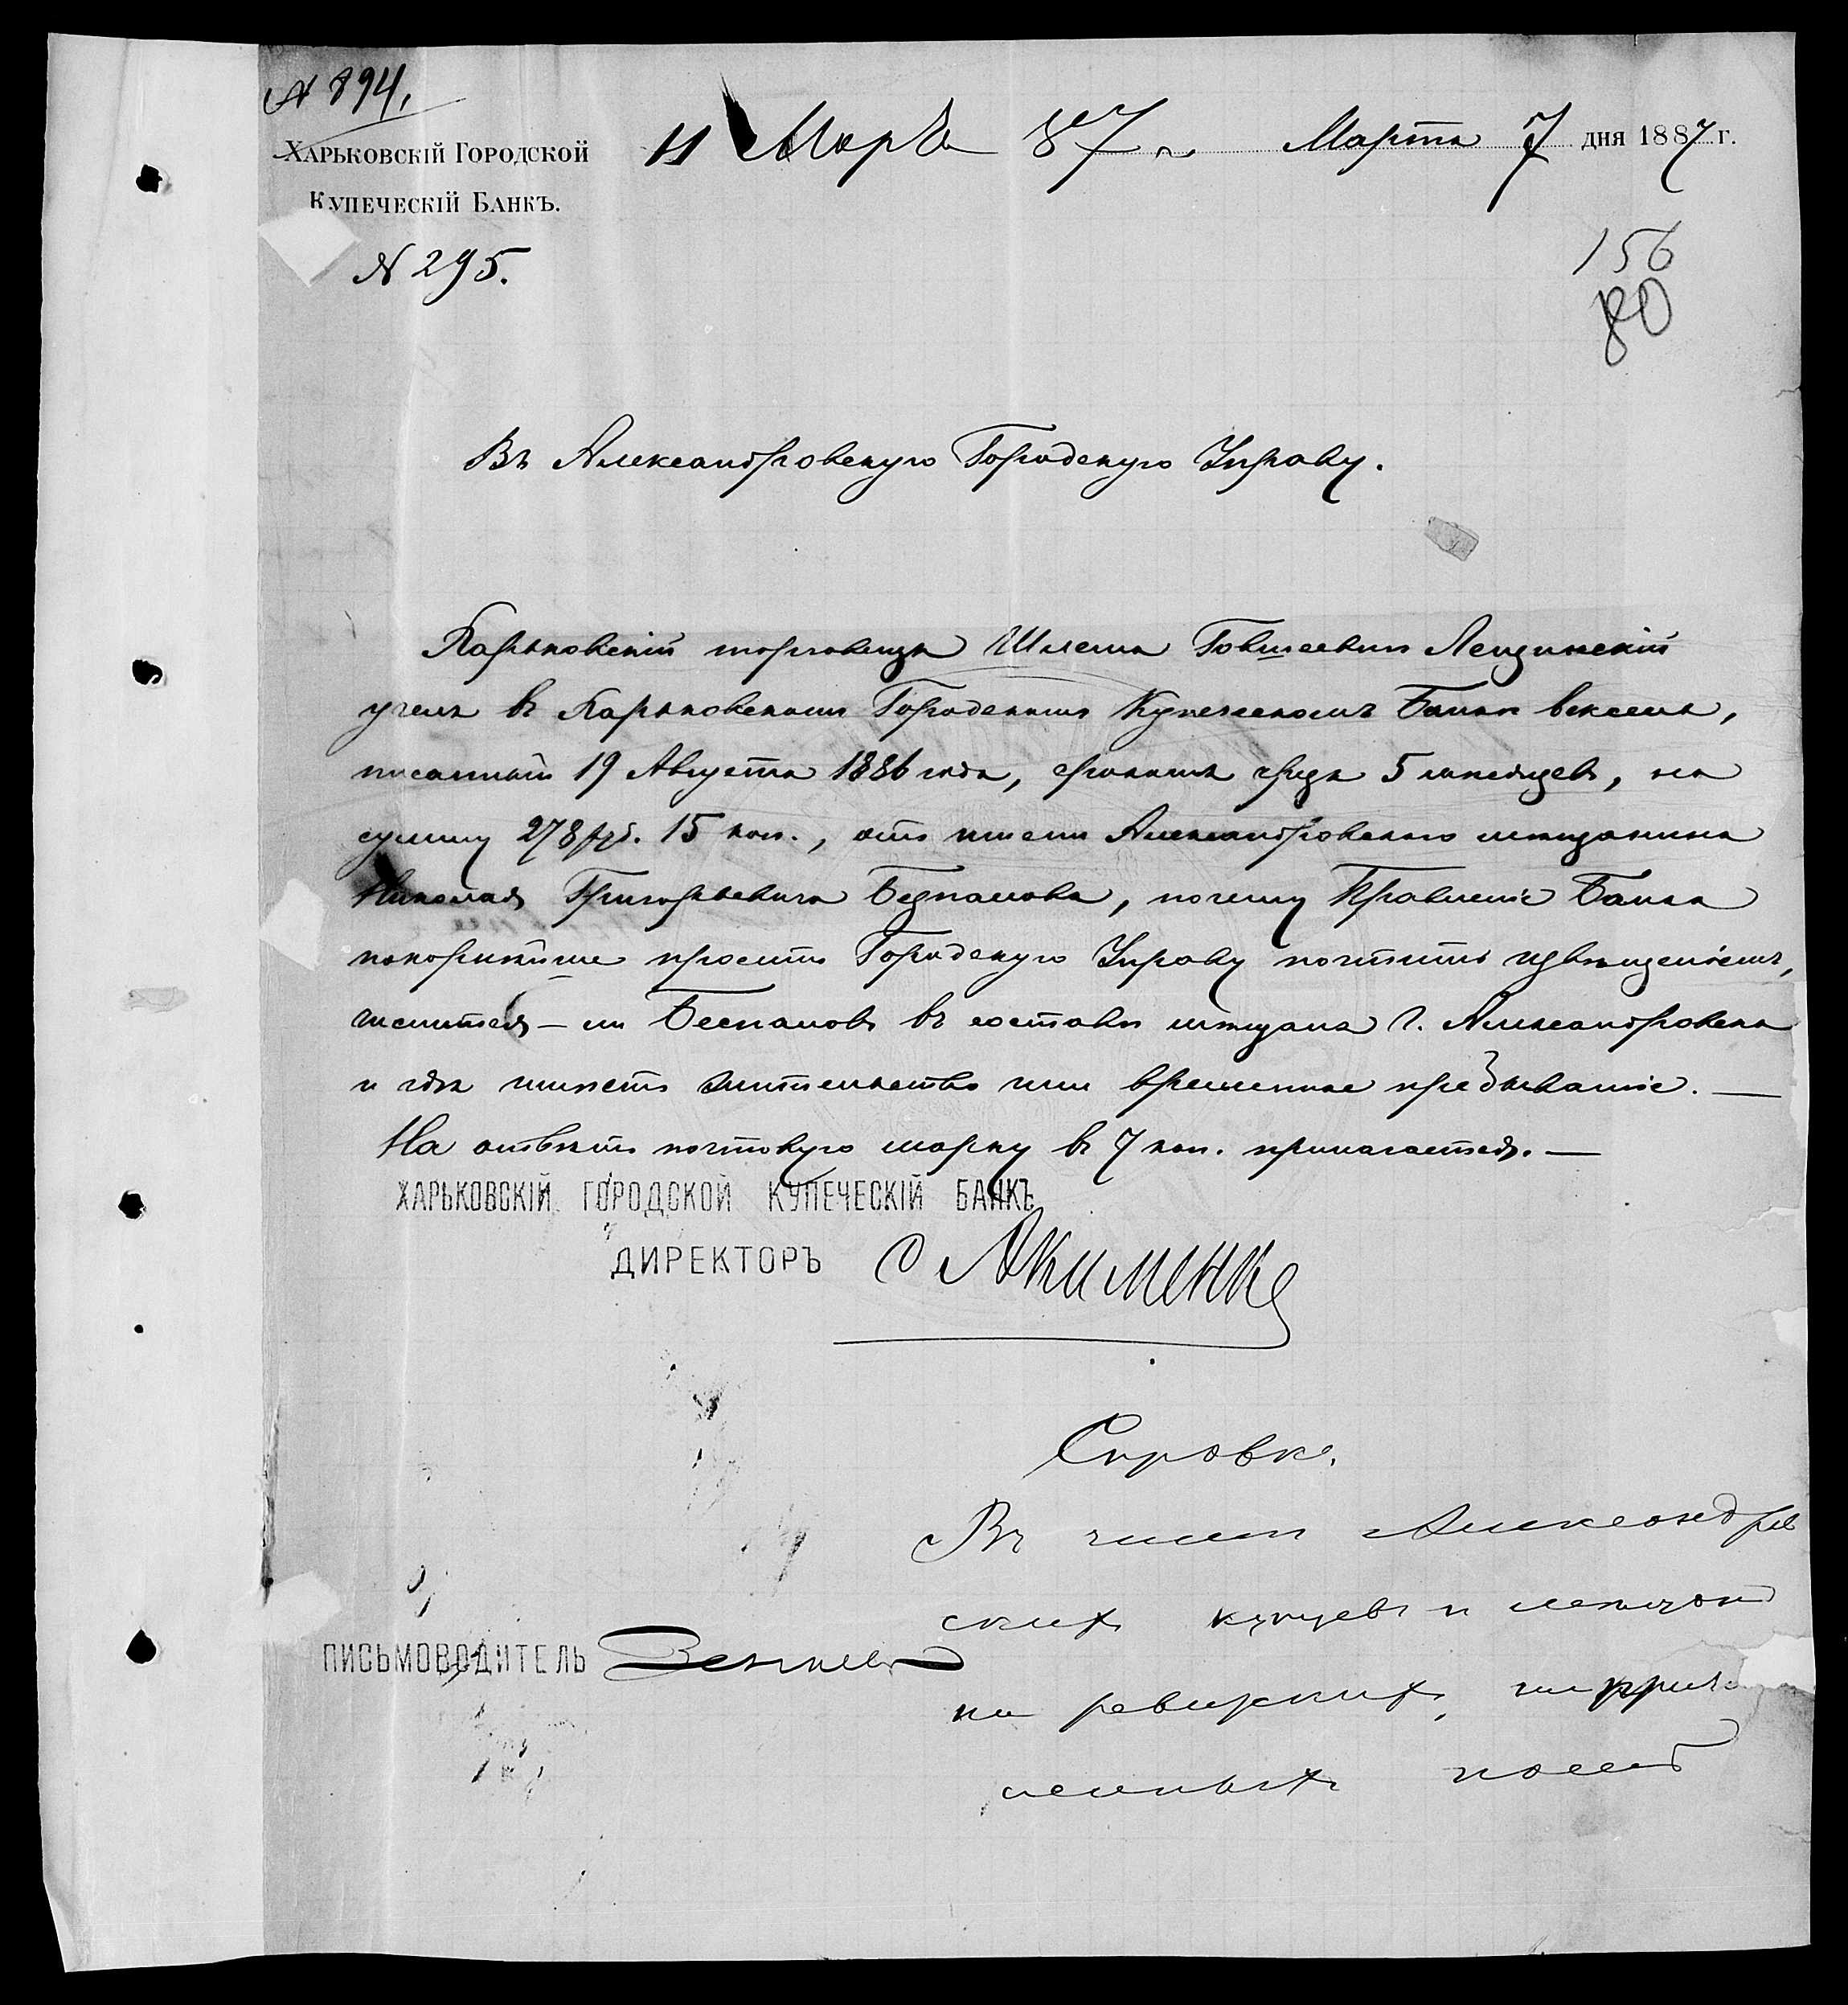 № 894.
Харьковскій Городской
Купеческій Банкъ.
11 Марта 87 г.
Марта 7 дня 1887 г.
№ 295.
156
80
Въ Александровскую Городскую Управу.
Харьковскій торговецъ Шлема Говшеевичъ Лещинскій
учелъ въ Харьковскомъ Городскомъ Купеческомъ Банкѣ вексель,
писанный 19 Августа 1886 года, срокомъ чрезъ 5 мѣсяцевъ, на
сумму 278 руб. 15 коп., отъ имени Александровскаго мѣщанина
Николая Григорьевича Безпалова, почему Правленіе Банка
покорнѣйше проситъ Городскую Управу почтить извѣщеніемъ,
числится-ли Беспаловъ въ составѣ мѣщанъ г. Александровска
и гдѣ имѣетъ жительство или временное пребываніе. —
На отвѣтъ почтовую марку въ 7 коп. прилагается. —
ХАРЬКОВСКІЙ ГОРОДСКОЙ КУПЕЧЕСКІЙ БАНКЪ
ДИРЕКТОРЪ Акименко
Справка.
Въ числѣ Александров
скихъ купцевъ и мѣщанъ
ни ревизскихъ, ни причи
сленныхъ послѣ
ПИСЬМОВОДИТЕЛЬ